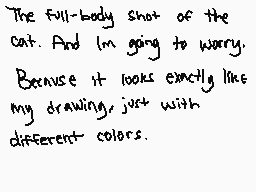 The full-body shot of the
cat. And Im going to worry.
Because it looks exactly like
my drawing, just with
different colors.